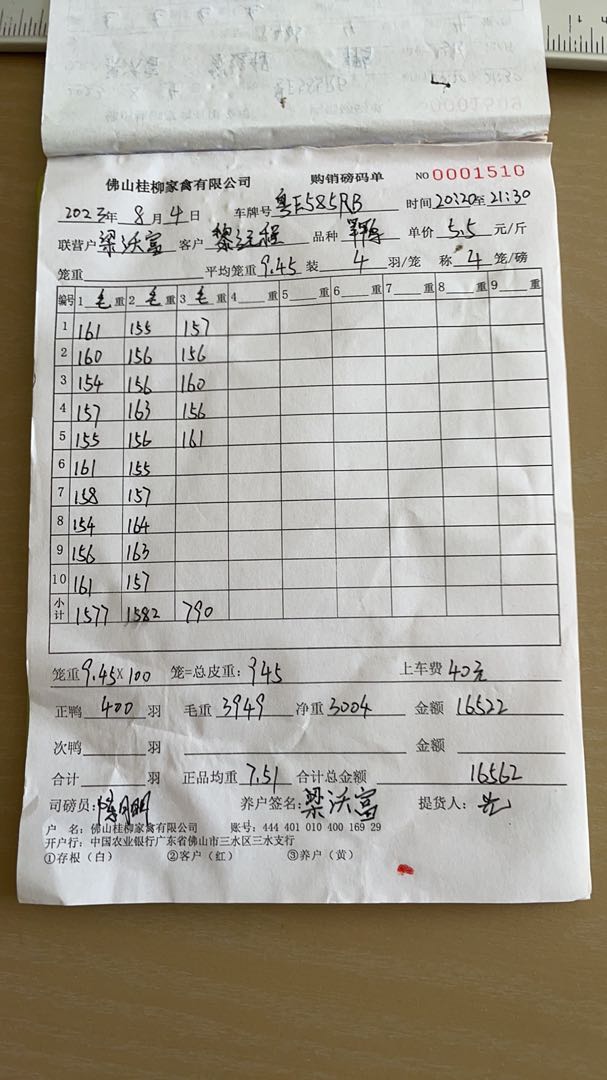 佛山桂柳家禽有限公司 购销磅码单 NO 0001510
2023年 8月4日 车牌号 粤E585RB 时间 20:20至21:30
联营户 梁沃富 客户 黎 程 品种 单价 5.5 元/斤
笼重 平均笼重 9.45 装 4 羽/笼 称 4 笼/磅
编号 1 毛 重 2 毛 重 3 毛 重 4 重 5 重 6 重 7 重 8 重 9 重
1 161 155 157
2 160 156 156
3 154 156 160
4 157 163 156
5 155 156 161
6 161 155
7 158 157
8 154 164
9 156 163
10 161 157
小计 1577 1582 790
笼重 9.45×100 笼=总皮重: 945 上车费 40元
正鸭 400 羽 毛重 3949 净重 3004 金额 16522
次鸭 羽 金额
合计 羽 正品均重 7.51 合计总金额 16562
司磅员: 明 养户签名: 梁沃富 提货人:
户 名: 佛山桂柳家禽有限公司 账号: 444 401 010 400 169 29
开户行: 中国农业银行广东省佛山市三水区三水支行
①存根(白) ②客户(红) ③养户(黄)